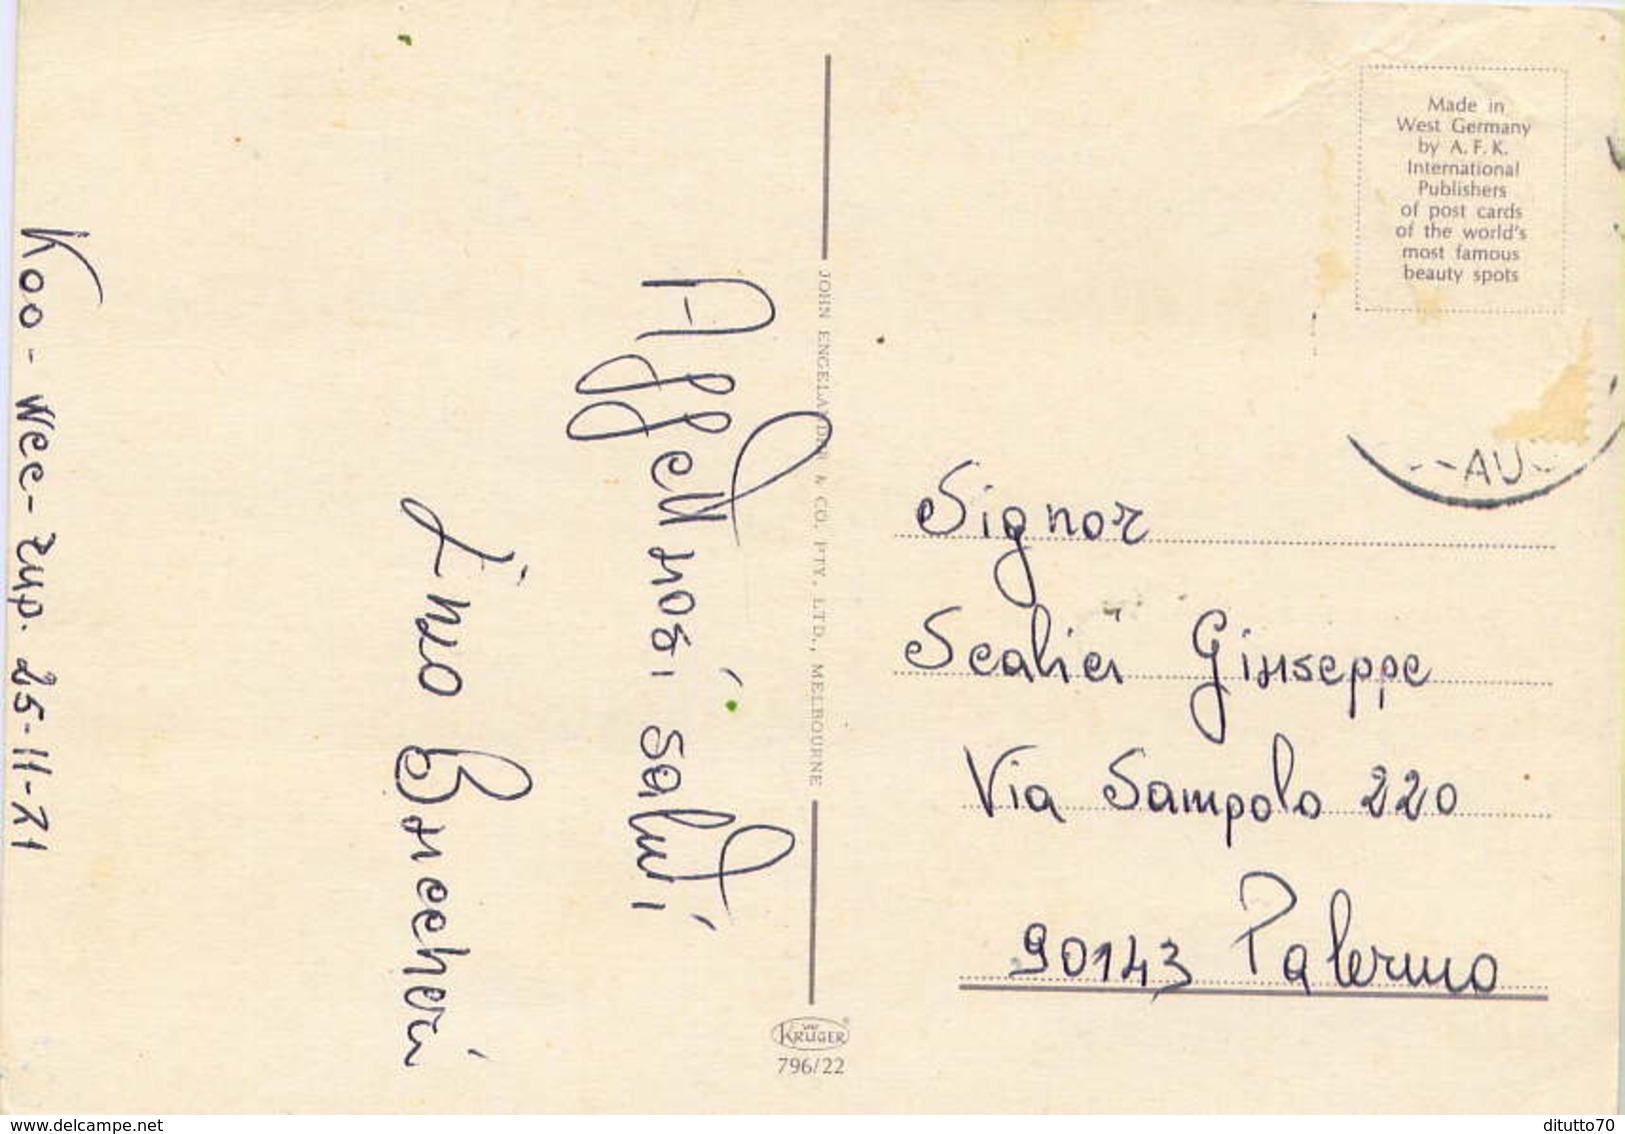 Koo-Wee-Rup. 25-11-71
Affettuosi saluti
Enzo Buccheri
JOHN ENGELANDER & CO. PTY. LTD., MELBOURNE
Made in
West Germany
by A. F. K.
International
Publishers
of post cards
of the world's
most famous
beauty spots
AU
Signor
Scalici Giuseppe
Via Sampolo 220
90143 Palermo
KRÜGER
796/22
www.delcampe.net
ditutto70